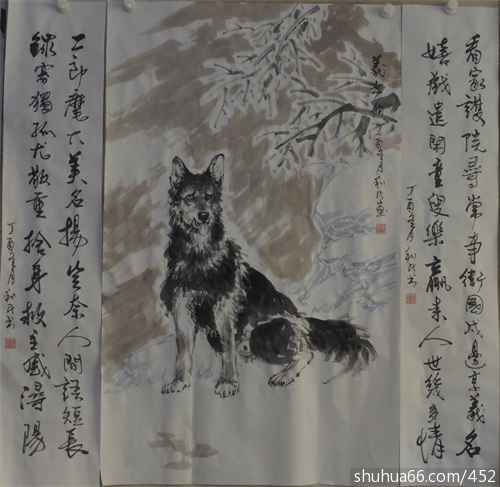 看家護院尋常事衛國戍邊享義名
嬉戲遣閑童叟樂贏來人世幾多情
丁酉年月利民書
義
丁酉年月利民畫
二郎麾下美名揚 奈人間語短長
鏡寡獨孤尤敬重捨身救主感潯陽
丁酉年月利民书
shuhua66.com/452